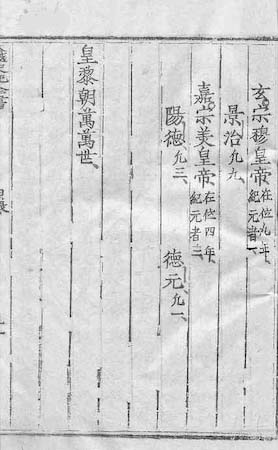 玄宗穆皇帝 在位九年 紀元者一
景治 凡九、
嘉宗美皇帝 在位四年 紀元者二
陽德 凡三、 德元 凡一、
皇黎朝萬萬世、